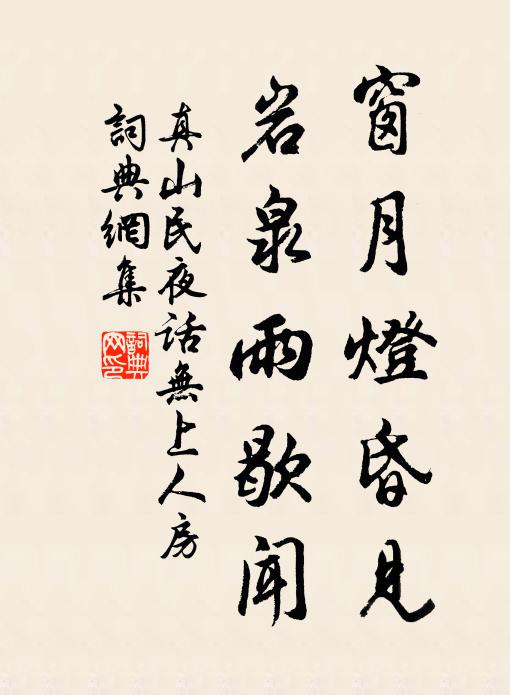 窗月燈昏見
岩泉雨歇聞
真山民夜話無上人房
詞典網集
詞典
网印